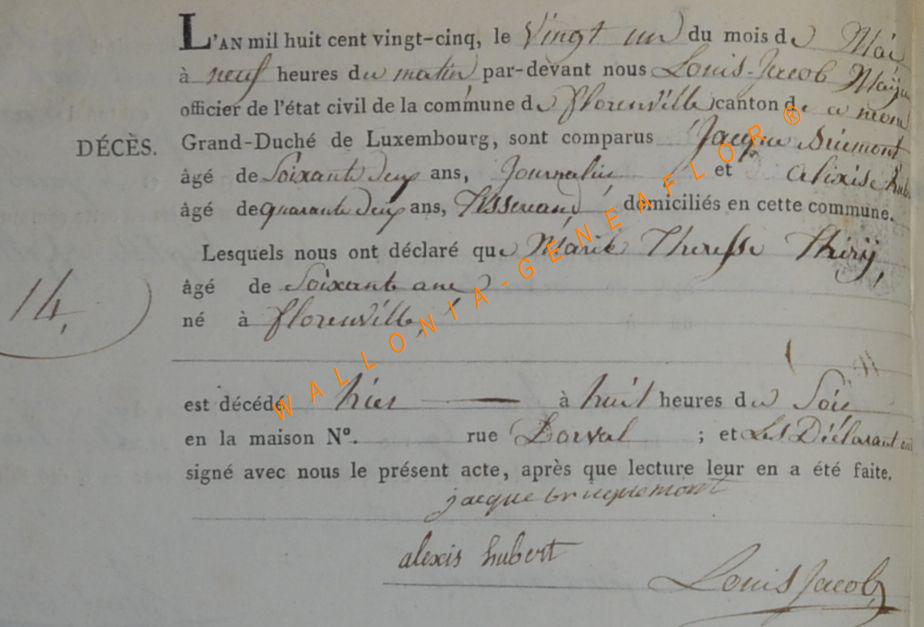 L'AN mil huit cent vingt-cinq, le Vingt un du mois de Mai
à neuf heures du matin par-devant nous Louis-Jacob
officier de l'état civil de la commune de florenville canton de
DÉCÈS. Grand-Duché de Luxembourg, sont comparus Jacque
âgé de Soixante deux ans, Journalier et
âgé de quarante deux ans, Tisserand domiciliés en cette commune.
Lesquels nous ont déclaré que Marie Theresse Thiry,
14, âgé de Soixante ans
né à florenville,
est décédé hier à huit heures du Soir
en la maison N°. rue Dorval ; et Les Déclarant ont
signé avec nous le présent acte, après que lecture leur en a été faite.
jacque bricquemont
alexis hubert
Louis Jacob
WALLONIA-GENEAFLOR ®